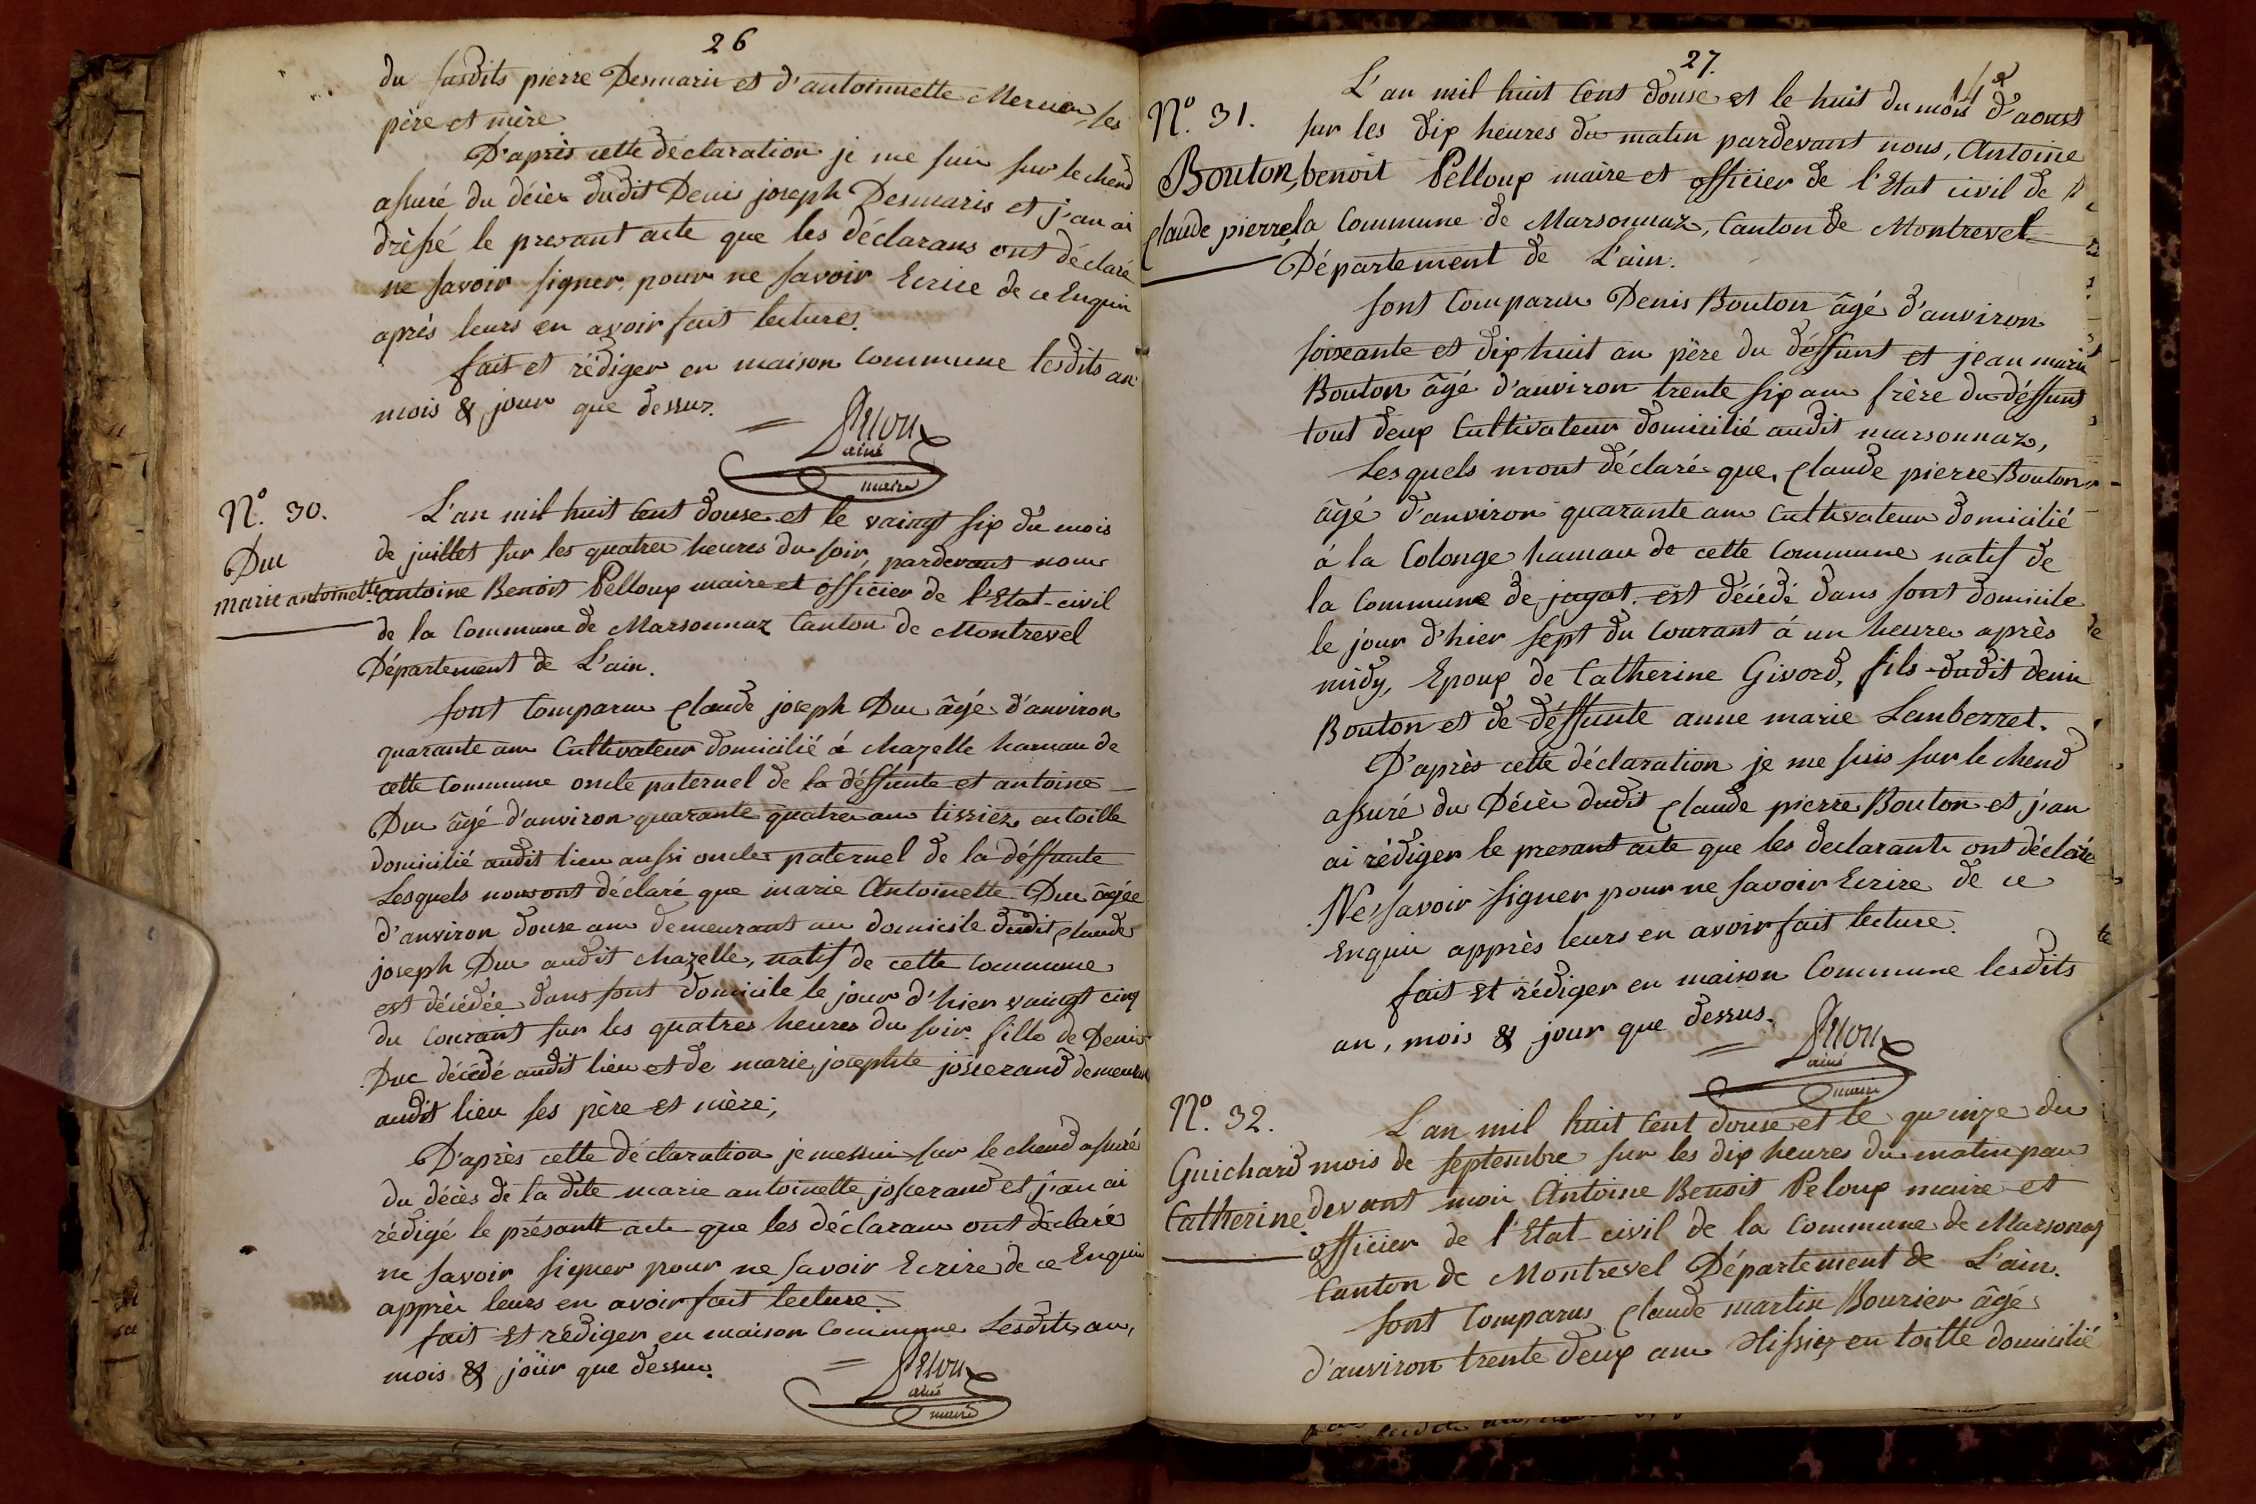 26
du susdits pierre Desmaris et d'antoinette Mercier ses
père et mère
D'après cette déclaration je me suis sur le chend
assuré du décès dudit Denis joseph Desmaris et j'an ai
drèssé le presant acte que les déclarans ont déclaré
ne savoir signer pour ne savoir Ecrire de ce Enquin
après leurs en avoir fait lectures.
fait et rédiger en maison commune lesdits an
mois & jour que dessuz.
ainé
maire
N° 30.
Duc
marie antoinette
L'an mil huit cent douse et le vaingt six du mois
de juillet sur les quatres heures du soir, pardevant nous
antoine Benoit Pelloux maire et officier de l'Etat-civil
de la Commune de Marsonnaz Canton de Montrevel
Département de L'ain.
sont Comparus Claude joseph Duc âgé d'anviron
quarante ans Cultivateur domicilié à chazelle hamau de
cette Commune oncle paternel de la déffunte et antoine
Duc âgé d'anviron quarante quatres ans tissiez en toille
domicilié audit lieu aussi oncles paternel de la déffunte
Lesquels nous ont déclaré que marie Antoinette Duc âgée
d'anviron douse ans demeurant au domicile dudit Claude
joseph Duc audit chazelle, natif de cette Commune
est décédée dans sont domicile le jour d'hier vaingt cinq
du Courant sur les quatres heures du soir. fille de Denis
Duc décédé audit lieu et de marie josephte josserand demeurant
audit lieu ses père et mère;
D'après cette déclaration je messuis sur le chend assuré
du décès de la dite marie antoinette josserand et j'an ai
rédigé le présantt acte que les déclarans ont déclaré
ne savoir signer pour ne savoir Ecrire de ce Enquin
apprès leurs en avoir fait lecture.
fait Et rédiger en maison Commune Lesdits an,
mois & jour que dessus.
ainé
maire
27.
N° 31.
Bouton,
Claude pierre,
L'an mil huit Cent douse et le huit du mois d'aoust
sur les dix heures du matin pardevant nous, Antoine
benoit Pelloux maire et officier de l'Etat civil de
la Commune de Marsonnaz, Canton de Montrevel
Département de L'ain.
sont Comparus Denis Bouton âgé d'anviron
soixante et dix huit an père du déffunt et jean marie
Bouton âgé d'anviron trente six ans frère du déffunt
tout deux Cultivateur domicilié audit marsonnaz,
Lesquels mont déclaré que, Claude pierre Bouton
âgé d'anviron quarante ans Cultivateur domicilié
à la Colonge hamau de cette Commune natif de
la Commune de jayat. est décédé dans sont domicile
le jour d'hier sept du Courant à un heures après
midy, Epoux de Catherine Givord, fils dudit denis
Bouton et de déffunte anne marie Lemberret.
D'après cette déclaration je me suis sur le chend
assuré du Décès dudit Claude pierre Bouton et j'an
ai rédiger le presant acte que les declarants ont déclaré
Ne savoir signer pour ne savoir Ecrire de ce
Enquin apprès leurs en avoir fait lecture.
fait Et rédiger en maison Commune lesdits
an, mois & jour que dessus.
ainé
maire
N° 32.
Guichard
Catherine
L'an mil huit Cent douse et le quinze du
mois de septembre sur les dix heures du matin par
devant moi Antoine Benoit Peloux maire et
officier de l'Etat-civil de la Commune de Marsonas
Canton de Montrevel Département de L'ain.
sont Comparus Claude martin Bourier âgé
d'anviron trente deux ans tissiez en toille domicilié